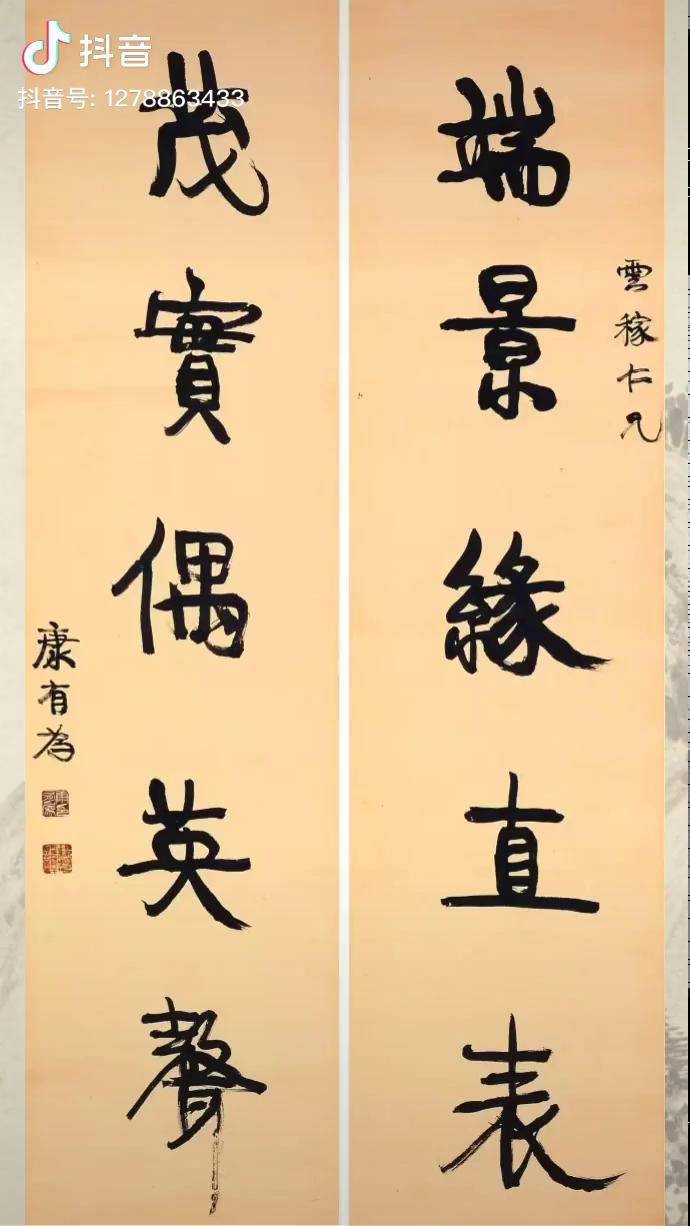 抖音
抖音号: 1278863433
雲稼仁兄
端景緣直表
茂實偶英聲
康有為